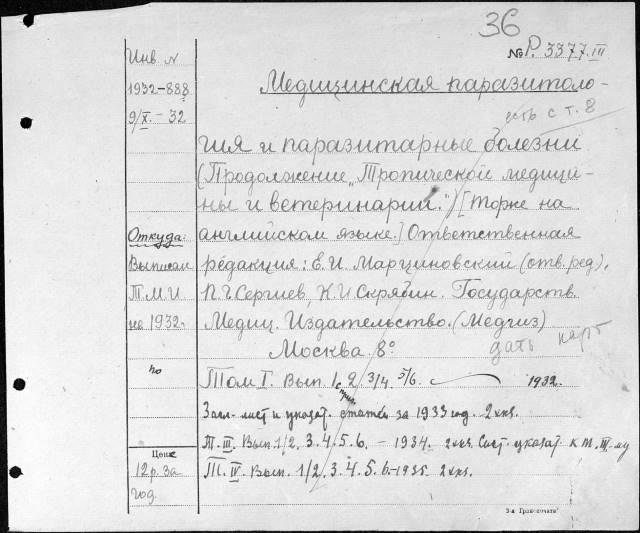 36
Инв N
№ P. 3377.III
1932-888
9/X. - 32
Медицинская паразитоло-
есть с т. 8
гия и паразитарные болезни
(Продолжение „Тропической медици-
ны и ветеринарии.") [Тоже на
Откуда:
английском языке.] Ответственная
Выписан
редакция: Е. И. Марциновский (отв. ред.),
Т.М.И
П. Г. Сергиев, К. И. Скрябин. Государств.
на 1932.
Медиц. Издательство. (Медгиз)
Москва 8°
дать карт
по
Том I. Вып. 1, 2, 3/4, 5/6. 1932.
Загл. лист и указат. статей за 1933 год. 2 экз.
Т. III. Вып. 1/2, 3. 4. 5. 6. – 1934. 2 экз. Сист. указат. к т. III-му
Цена
12 р. за
Т. IV. Вып. 1/2, 3. 4. 5. 6 - 1935. 2 экз.
год.